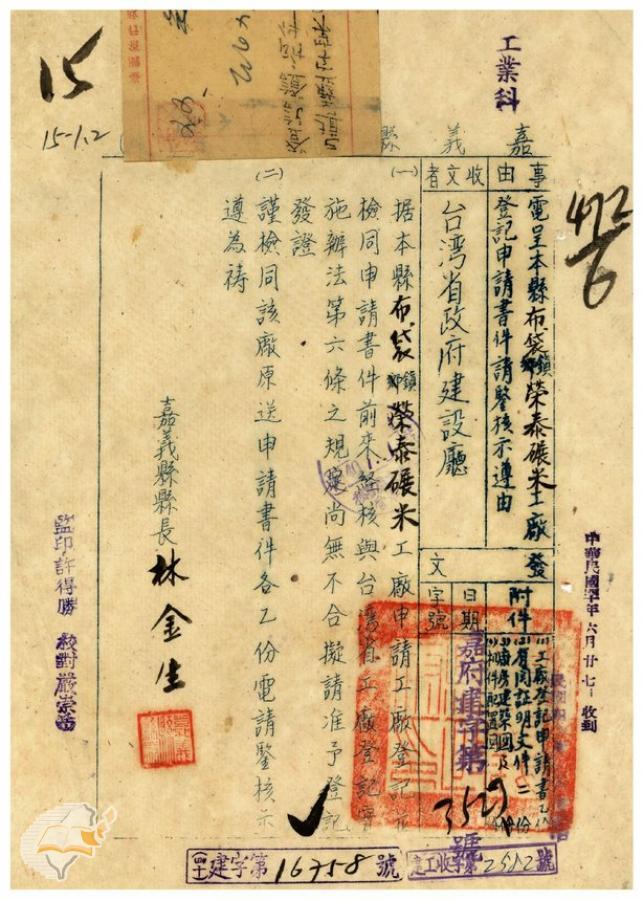 工業科
嘉義縣
事由
電呈本縣布袋鄉鎮榮泰碾米工廠
登記申請書件請鑒核示遵由
收文者
台湾省政府建設廳
發文
附件
(1)工廠登記申請書乙份
(2)有関証明文件二份
日期
字號
嘉府建字第3529號
(一)据本縣布袋鄉鎮榮泰碾米工廠申請工廠登記並
檢同申請書件前來經核與台湾省工廠登記實
施辦法第六條之規定尚無不合擬請准予登記
發證
(二)謹檢同該廠原送申請書件各乙份電請鑒核示
遵為禱
嘉義縣縣長 林金生
監印許得勝 校對嚴崇
中華民國 年六月廿七 收到
15
15-1.2
建字第16758號
建工收字第2512號